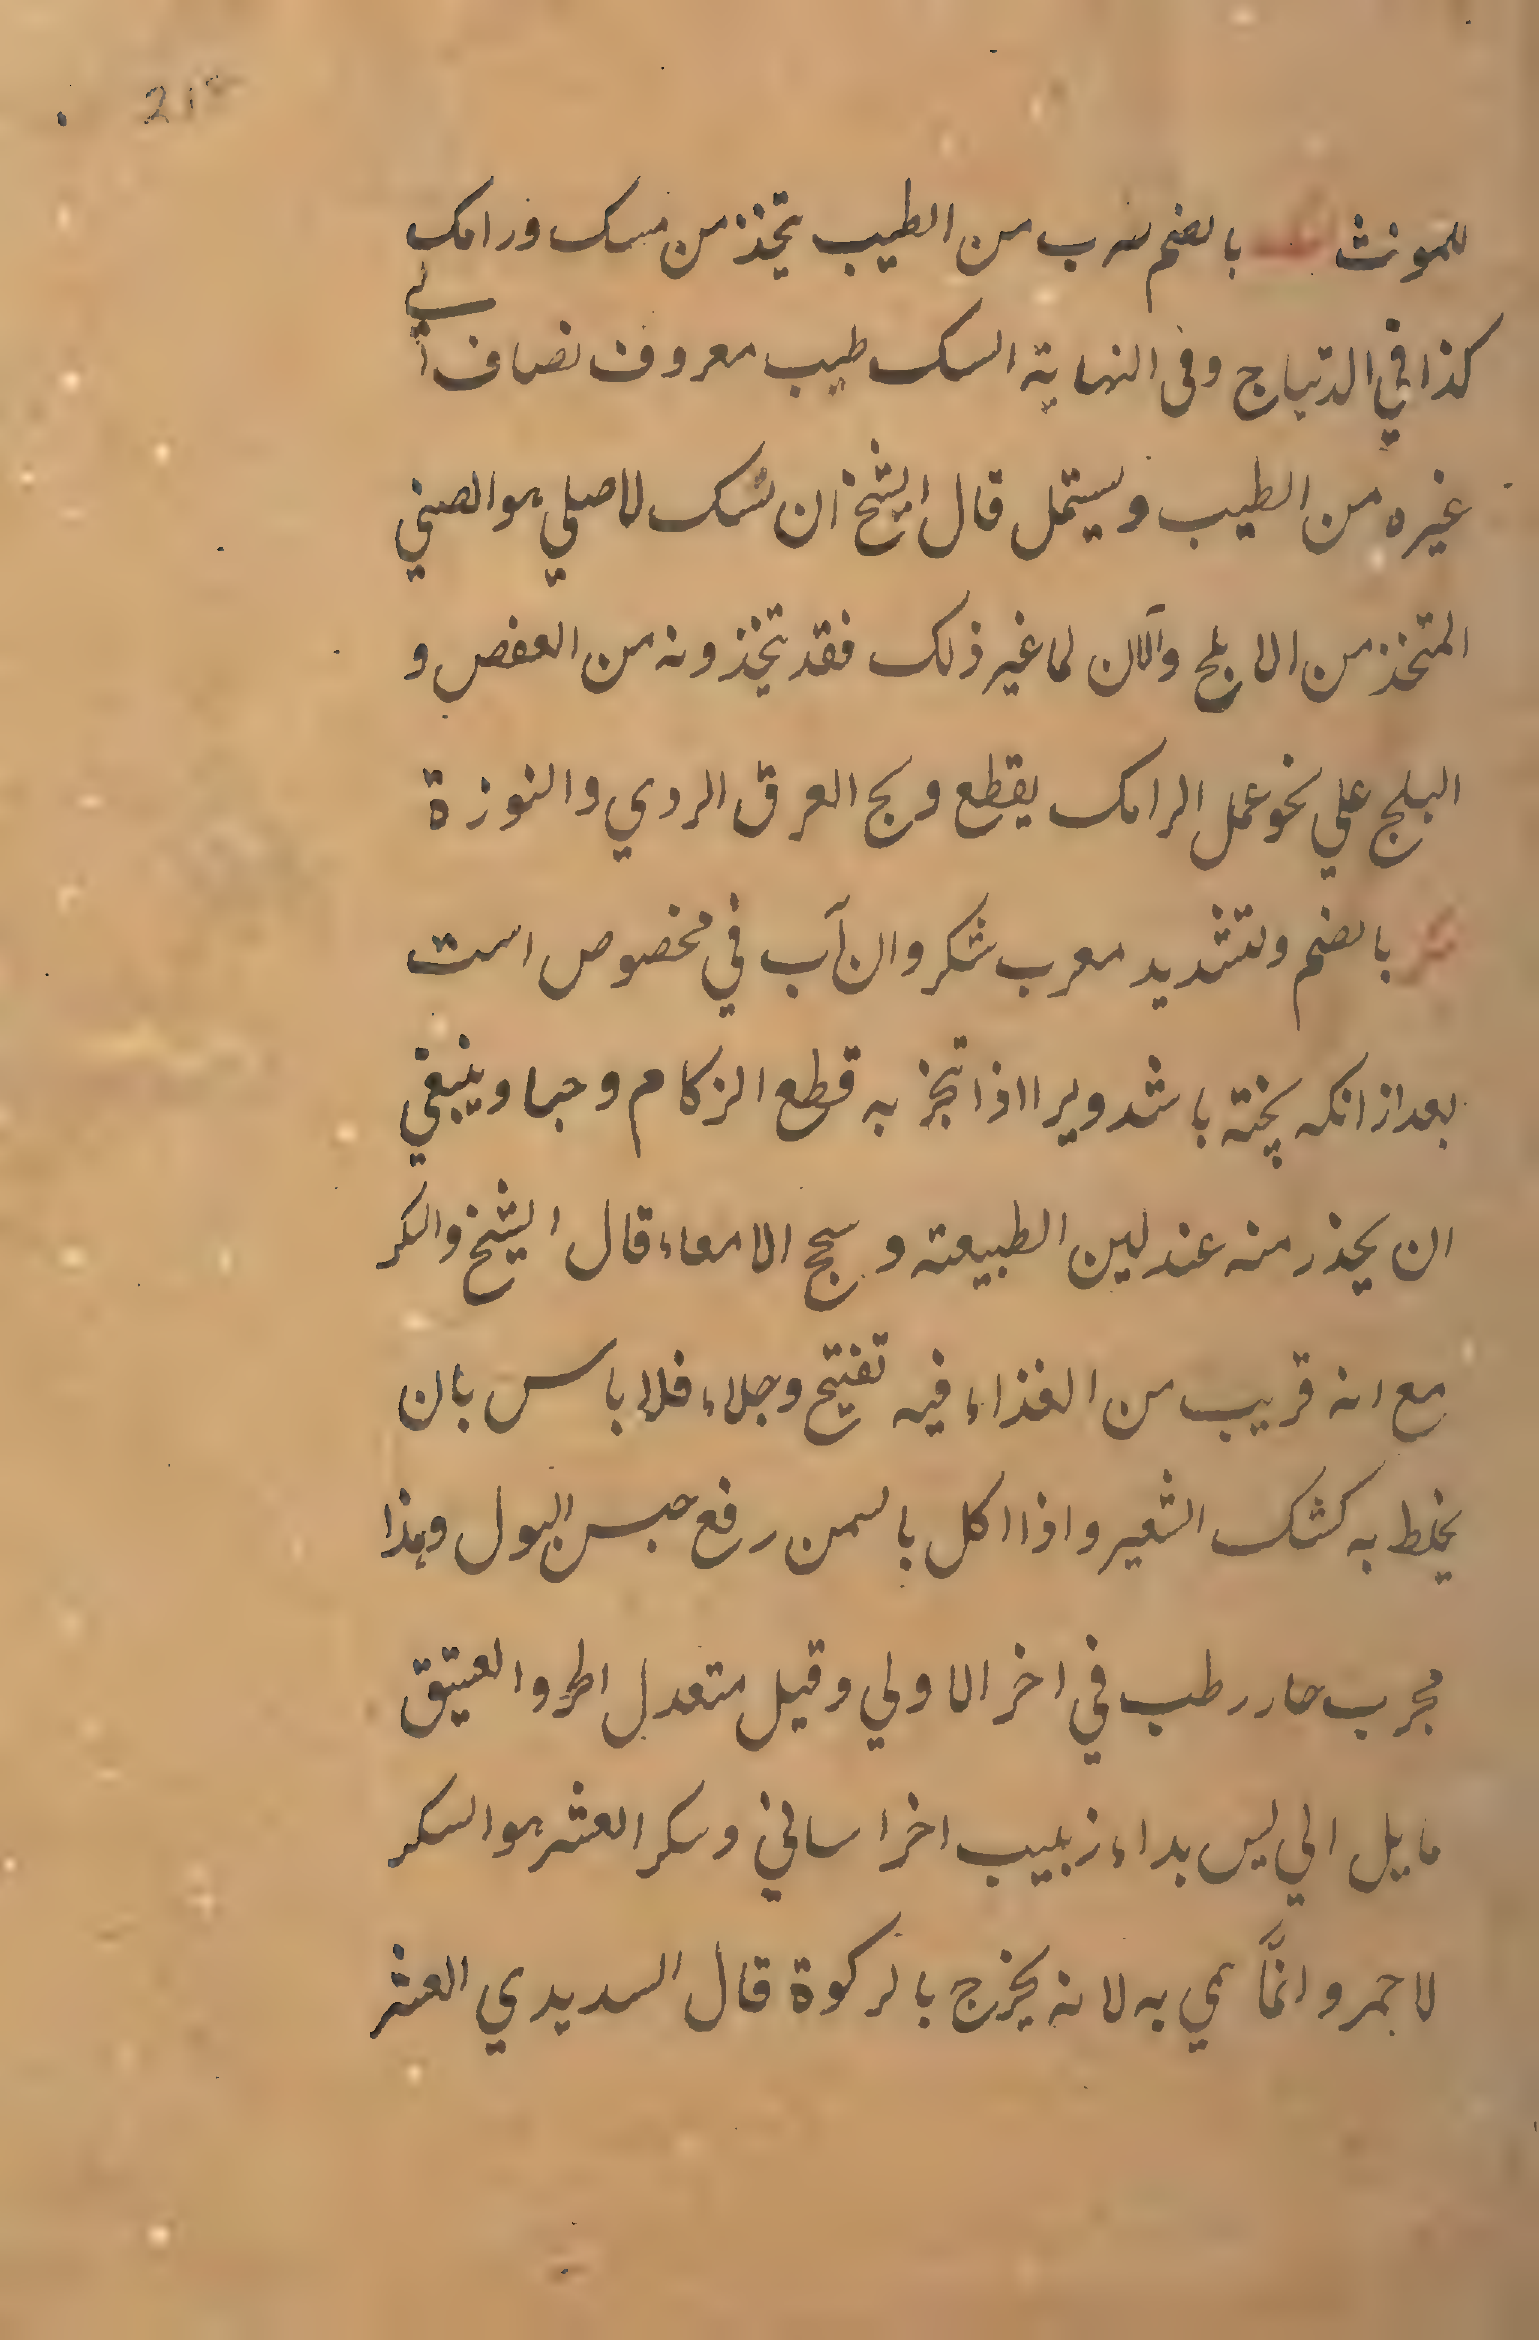 للمونث السك بالضم ضرب من الطيب يتخذ من مسك ورامك
كذا في الديباج وفى النهاية السك طيب معروف نضاف الي
غيره من الطيب ويستمل قال الشيخ ان سك لاصلي هو الصيني
المتخذ من الابلج والان لما غير ذلك فقد يتخذونه من العفص و
البلج علي نحو عمل الرامك يقطع وبج العرق الردي والنوزة
سكر بالضم ولتشديد معرب شكر وان آب في مخصوص است
بعد از انكه پخته باشد ويرا اذا تبخر به قطع الزكام وحبا وينبغي
ان يحذر منه عند لين الطبيعته وسحج الامعاء قال الشيخ والسكر
مع انه قريب من الغذاء فيه تفتيح وجلاء فلا باس بان
يخلط به كشك الشعير واذا اكل بالسمن رفع حبس البول وهذا
مجرب حار رطب في اخر الاولي وقيل متعدل الحر والعيتق
مايل الي ليس بداء زبيب اخراساني وسكر العشر هو السكر
لاحمر وانَّما سمي به لانه يخرج بالركوة قال السديدي العشر